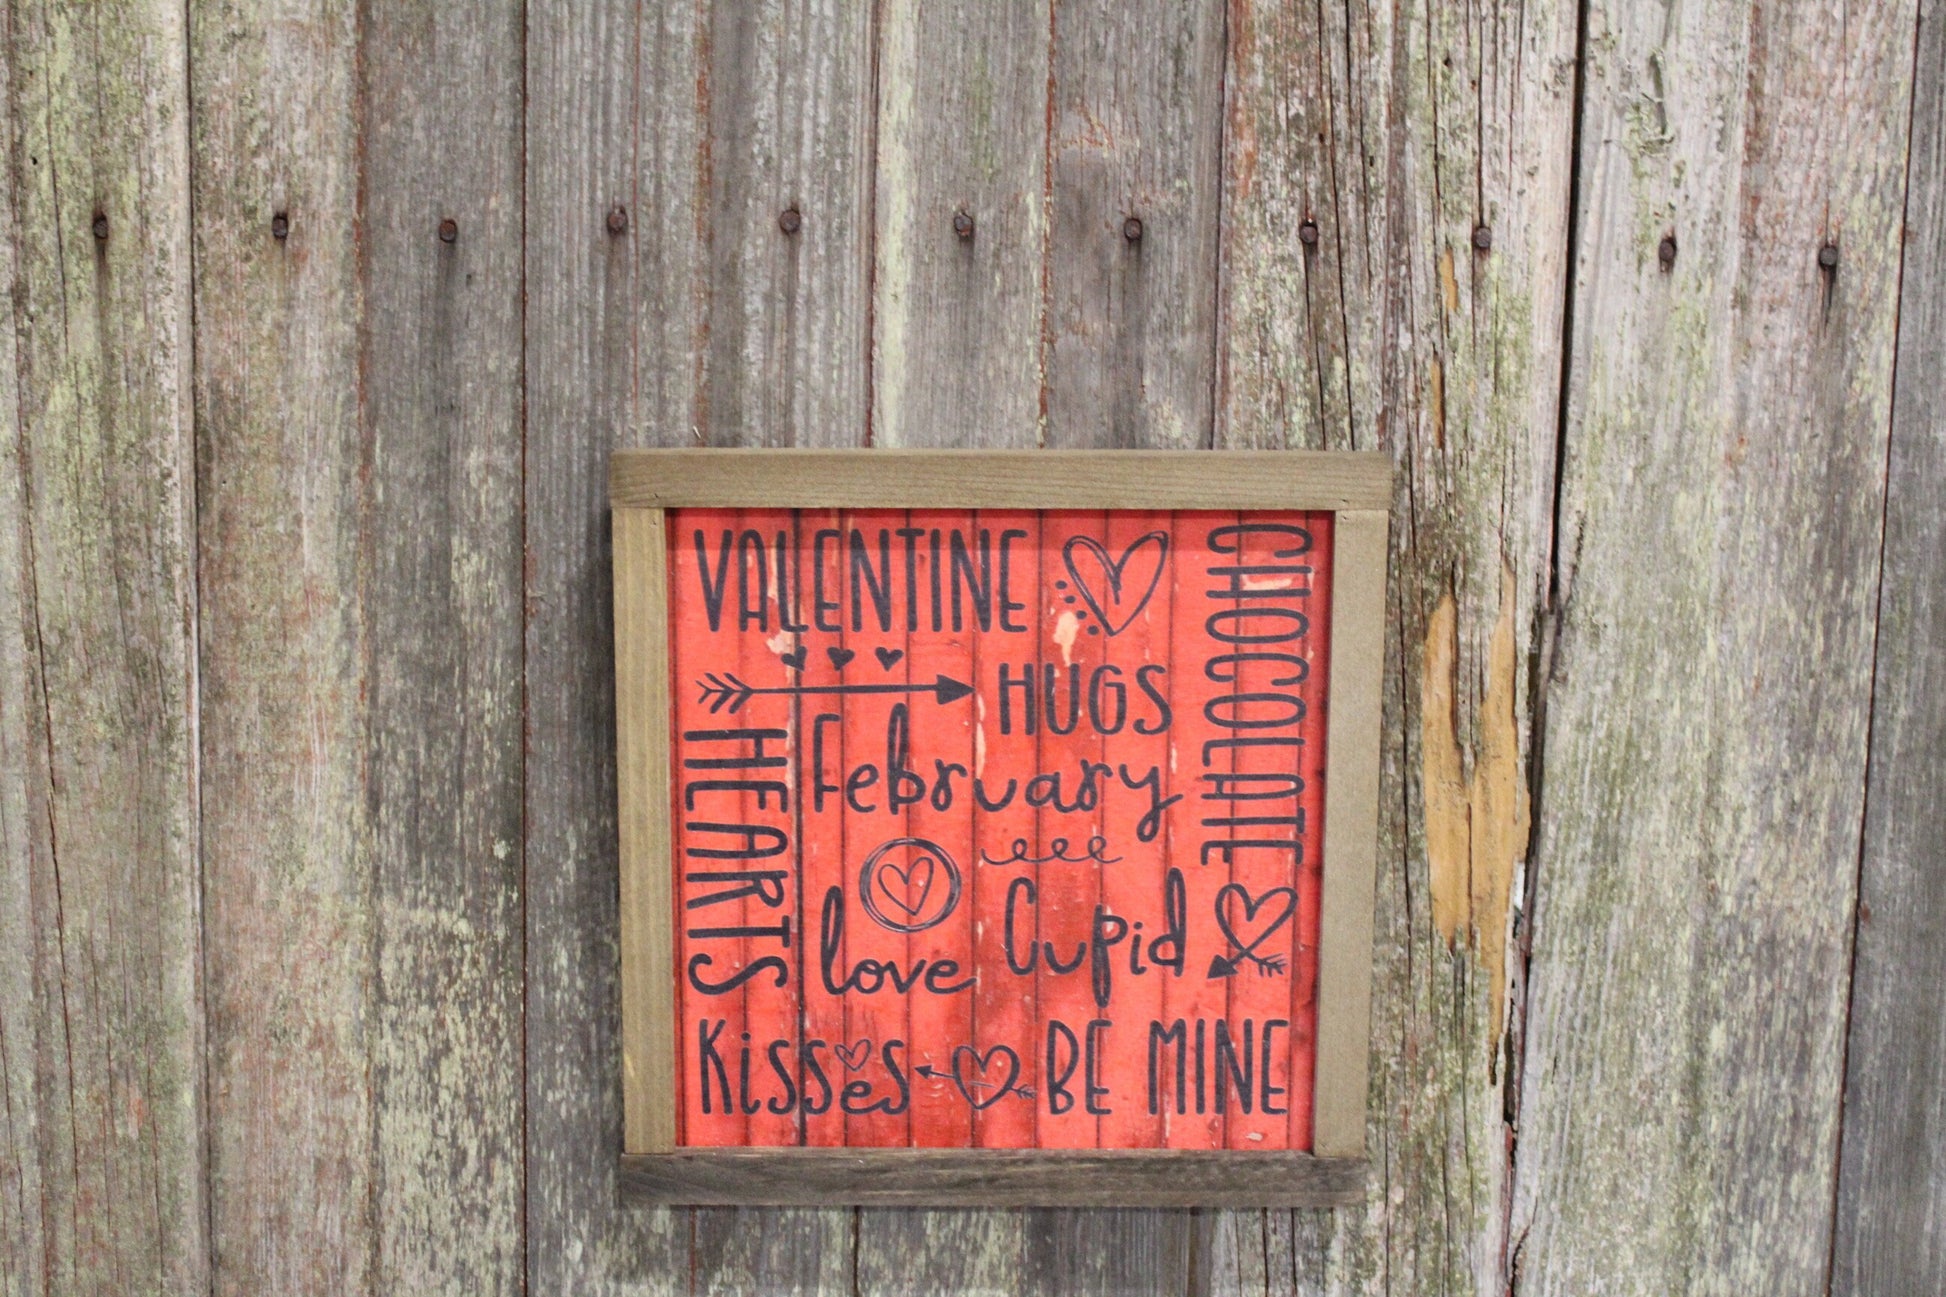 VALENTINE
CHOCOLATE
HUGS
HEARTS
February
love
Cupid
Kisses
BE MINE